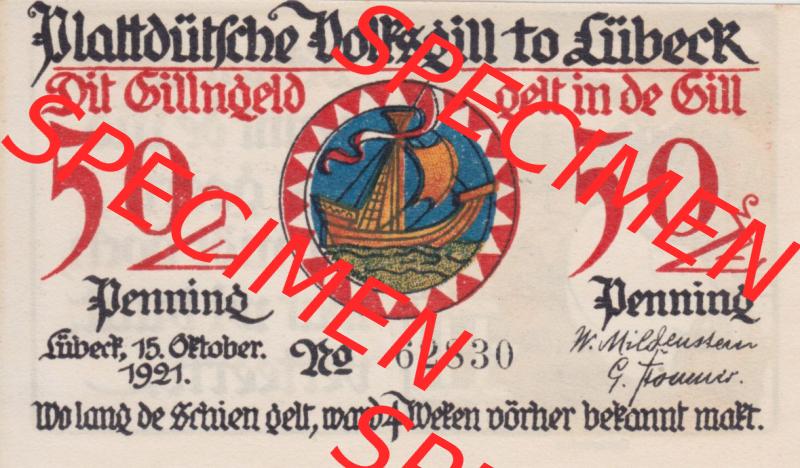 Plattdütsche Volksgill to Lübeck
Dit Gillngeld gelt in de Gill
50 50
Penning Penning
Lübeck, 15. Oktober.
1921.
No 62830
W. Mildenstein
Wo lang de Schien gelt, ward 4 Weken vörher bekannt makt.
SPECIMEN
SPECIMEN